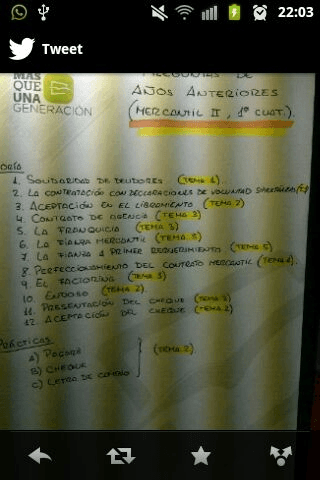 22:03
Tweet
MÁS
QUE
UNA
GENERACIÓN
PREGUNTAS DE
AÑOS ANTERIORES
(MERCANTIL II, 1º CUAT.).
1. SOLIDARIDAD DE DEUDORES (TEMA 1)
2. LA CONTRATACIÓN CON DECLARACIONES DE VOLUNTAD
3. ACEPTACIÓN EN EL LIBRAMIENTO (TEMA 2)
4. CONTRATO DE AGENCIA (TEMA 3)
5. LA FRANQUICIA (TEMA 3)
6. LA FIANZA MERCANTIL (TEMA 5)
7. LA FIANZA A PRIMER REQUERIMIENTO (TEMA 5)
8. PERFECCIONAMIENTO DEL CONTRATO MERCANTIL (TEMA 1)
9. EL FACTORING (TEMA 3)
10. ENDOSO (TEMA 2)
11. PRESENTACIÓN DEL CHEQUE (TEMA 2)
12. ACEPTACIÓN DEL CHEQUE (TEMA 2)
PRÁCTICAS
A) PAGARÉ
B) CHEQUE (TEMA 2)
C) LETRA DE CAMBIO